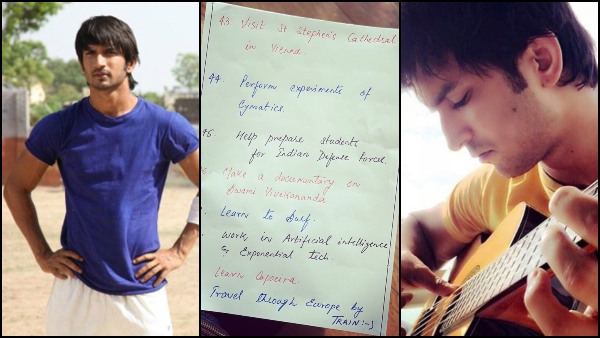 43. Visit St Stephen's Cathedral
in Vienna.
44. Perform experiments of
Cymatics
45. Help prepare students
for Indian Defense Forces.
Make a documentary on
Swami Vivekananda
Learn to Surf.
Work in Artificial intelligence
& Exponential tech.
Learn Capoeira.
Travel through Europe by
TRAIN :-)